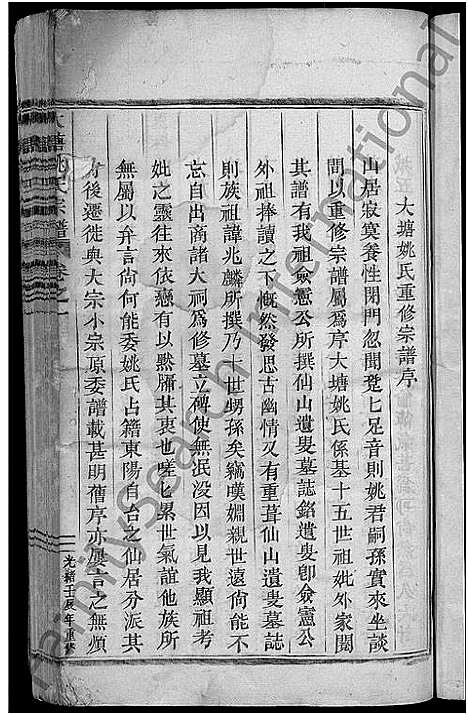 大塘姚氏重修宗譜序
山居寂寞養性閉門忽聞跫跫足音則姚君嗣孫實來坐談
間以重修宗譜屬爲序大塘姚氏係基十五世祖妣外家閱
其譜有我祖僉憲公所撰仙山遺叟墓誌銘遺叟卽僉憲公
外祖捧讀之下慨然發思古幽情又有重葺仙山遺叟墓誌
則族祖諱兆麟所撰乃十世甥孫矣竊嘆婣親世遠尙能不
忘自出商諸大祠爲修墓立碑使無泯没因以見我顯祖考
妣之靈往來依戀有以默牖其衷也嗟乚累世氣誼他族所
無屬以弁言尙何能委姚氏占籍東陽自台之仙居分派其
前後遷徙與大宗小宗原委譜載甚明舊序亦屢言之無煩
大塘姚氏宗譜 卷之一
光緒壬辰年重修
FamilySearch International